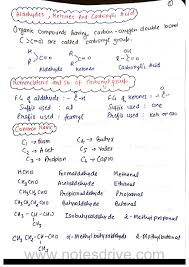 Aldehydes, Ketones And Carboxylic Acid
Organic compounds having carbon-oxygen double bond
(>C=O) are called carbonyl group.
Aldehyde Ketone Carboxylic Acid
Nomenclature and St. of Carbonyl group
F.G of aldehyde :- -C-H F.G of ketones :- -C-
Suffix used : al Suffix used : one
Prefix used : formyl Prefix used : Keto or oxo
Common Name
C1 → Form C4 → Butyr
C2 → Acet C5 → Valer
C3 → Propion C6 → Capro
HCHO Formaldehyde Methanal
CH3CHO Acetaldehyde Ethanal
CH3CH2CHO Propionaldehyde Propanal
CH3CH2CH2CHO Butyraldehyde Butanal
CH3-CH-CHO Isobutyraldehyde 2-Methylpropanal
CH3
CH3CH2-CH-CHO α-Methylbutyraldehyde 2-Methylbutanal
www.notesdrive.com